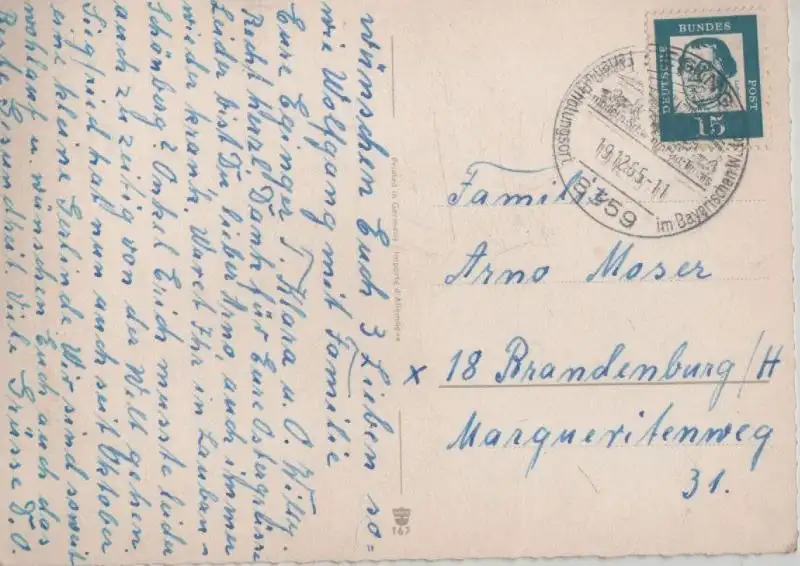 wünschen Euch 3 Lieben so=
wie Wolfgang mit Familie
Eure Eginger T. Klara u. O. Willy.
Recht herzl. Dank für Eure Ostergrüsse
Leider bist Du lieber Arno auch immer
wieder krank. Waret Ihr in Lauban-
Schönberg? Onkel Erich musste leider
auch zu zeitig von der Welt gehen.
Siegfried hat nun auch seit Oktober
eine kleine Gerlinde. Wir sind soweit
wohlauf u. wünschen Euch auch das
Gesundheit. Viele Grüsse D. O
Printed in Germany Importé d'Allemagne
167
DEUTSCHE
BUNDES
POST
15
Ferien- u. Erholungsort
im Bayerischen
19.12.65-11
8459
Famili
Arno Moser
x 18 Brandenburg/H
Margueritenweg
31.